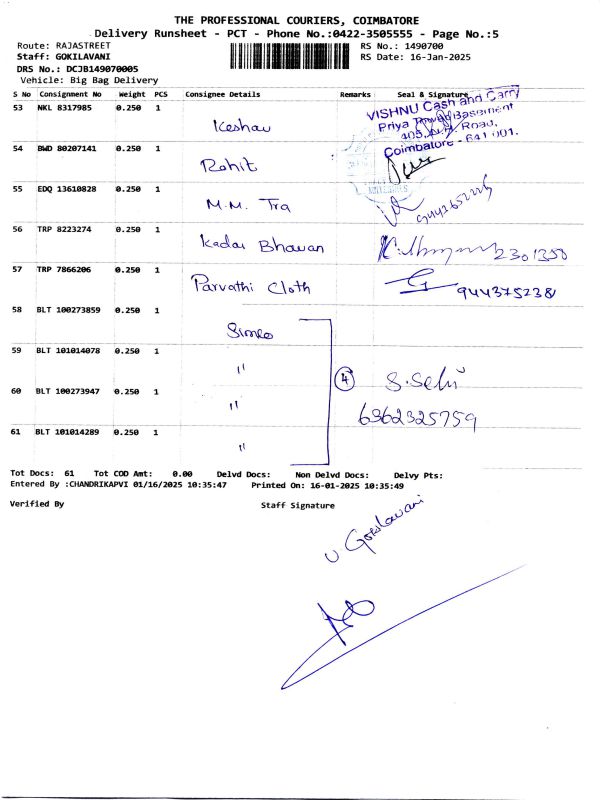 THE PROFESSIONAL COURIERS, COIMBATORE
Delivery Runsheet - PCT - Phone No.:0422-3505555 - Page No.:5
Route: RAJASTREET RS No.: 1490700
Staff: GOKILAVANI RS Date: 16-Jan-2025
DRS No.: DCJB149070005
Vehicle: Big Bag Delivery
S No Consignment No Weight PCS Consignee Details Remarks Seal & Signature
53 NKL 8317985 0.250 1 Keshav
VISHNU Cash and Carry
Priya Towers Basement
405, Road,
Coimbatore - 641 001.
54 BWD 80207141 0.250 1 Rohit
55 EDQ 13610828 0.250 1 M.M. Tra
56 TRP 8223274 0.250 1 Kadai Bhavan 2301350
57 TRP 7866206 0.250 1 Parvathi Cloth 944375238
58 BLT 100273859 0.250 1
59 BLT 101014078 0.250 1 " 4 S.Selvi
60 BLT 100273947 0.250 1 " 6362325759
61 BLT 101014289 0.250 1 "
Tot Docs: 61 Tot COD Amt: 0.00 Delvd Docs: Non Delvd Docs: Delvy Pts:
Entered By :CHANDRIKAPVI 01/16/2025 10:35:47 Printed On: 16-01-2025 10:35:49
Verified By Staff Signature
V. Gokilavani